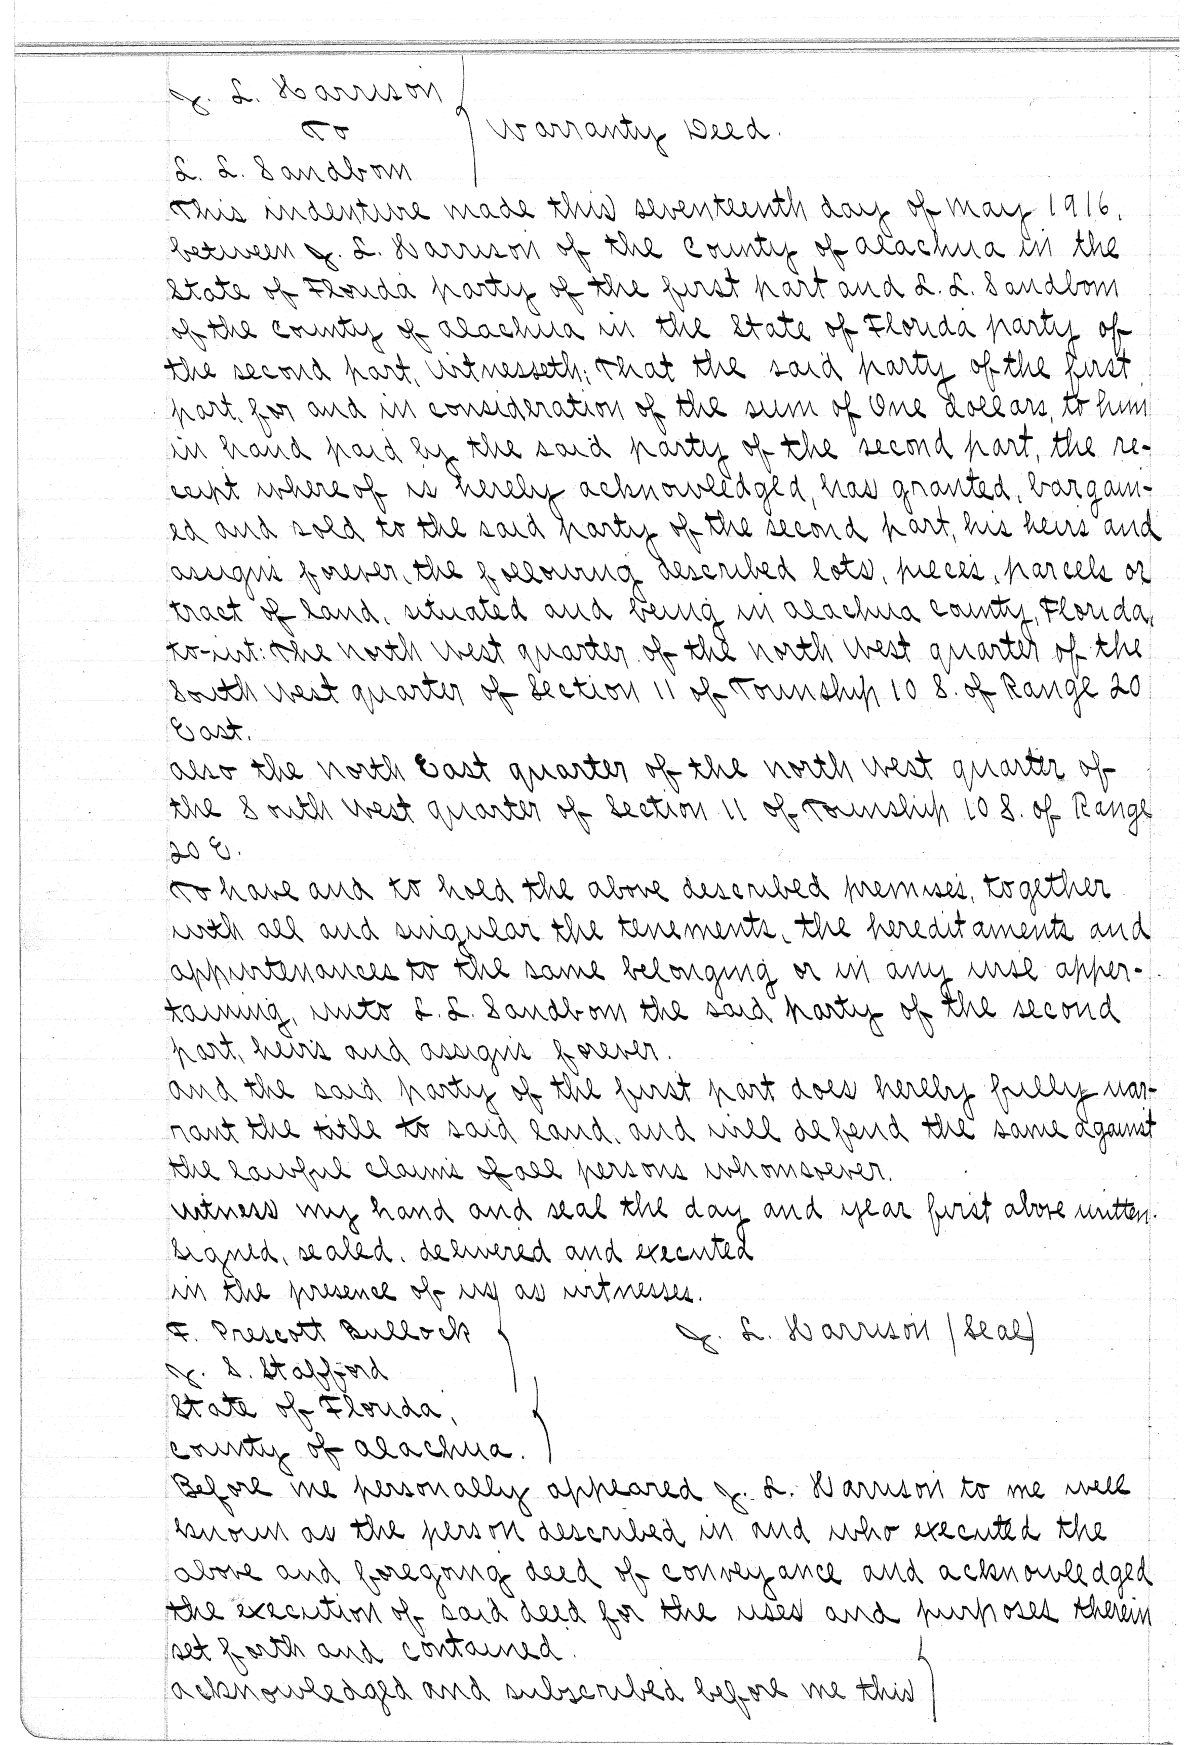 J. L. Harrison
To
Warranty Deed.
L. L. Sandbom
This indenture made this seventeenth day of May 1916,
between J. L. Harrison of the County of Alachua in the
State of Florida party of the first part and L. L. Sandbom
of the County of Alachua in the State of Florida party of
the second part, Witnesseth; That the said party of the first
part, for and in consideration of the sum of One dollars, to him
in hand paid by the said party of the second part, the re-
ceipt where of is hereby acknowledged, has granted, bargain-
ed and sold to the said party of the second part, his heirs and
assigns forever, the following described lots, pieces, parcels or
tract of land, situated and being in Alachua County, Florida,
to-wit: The North West quarter of the North West quarter of the
South West quarter of Section 11 of Township 10 S. of Range 20
East.
Also the North East quarter of the North West quarter of
the South West quarter of Section 11 of Township 10 S. of Range
20 E.
To have and to hold the above described premises, together
with all and singular the tenements, the hereditaments and
appurtenances to the same belonging or in any wise apper-
taining, unto L. L. Sandbom the said party of the second
part, heirs and assigns forever.
And the said party of the first part does hereby fully war-
rant the title to said land, and will defend the same against
the lawful claims of all persons whomsoever.
Witness my hand and seal the day and year first above written.
Signed, sealed, delivered and executed
in the presence of us as witnesses.
F. Prescott Bullock J. L. Harrison (Seal)
J. S. Stafford
State of Florida,
County of Alachua.
Before me personally appeared J. L. Harrison to me well
known as the person described in and who executed the
above and foregoing deed of conveyance and acknowledged
the execution of said deed for the uses and purposes therein
set forth and contained.
Acknowledged and subscribed before me this